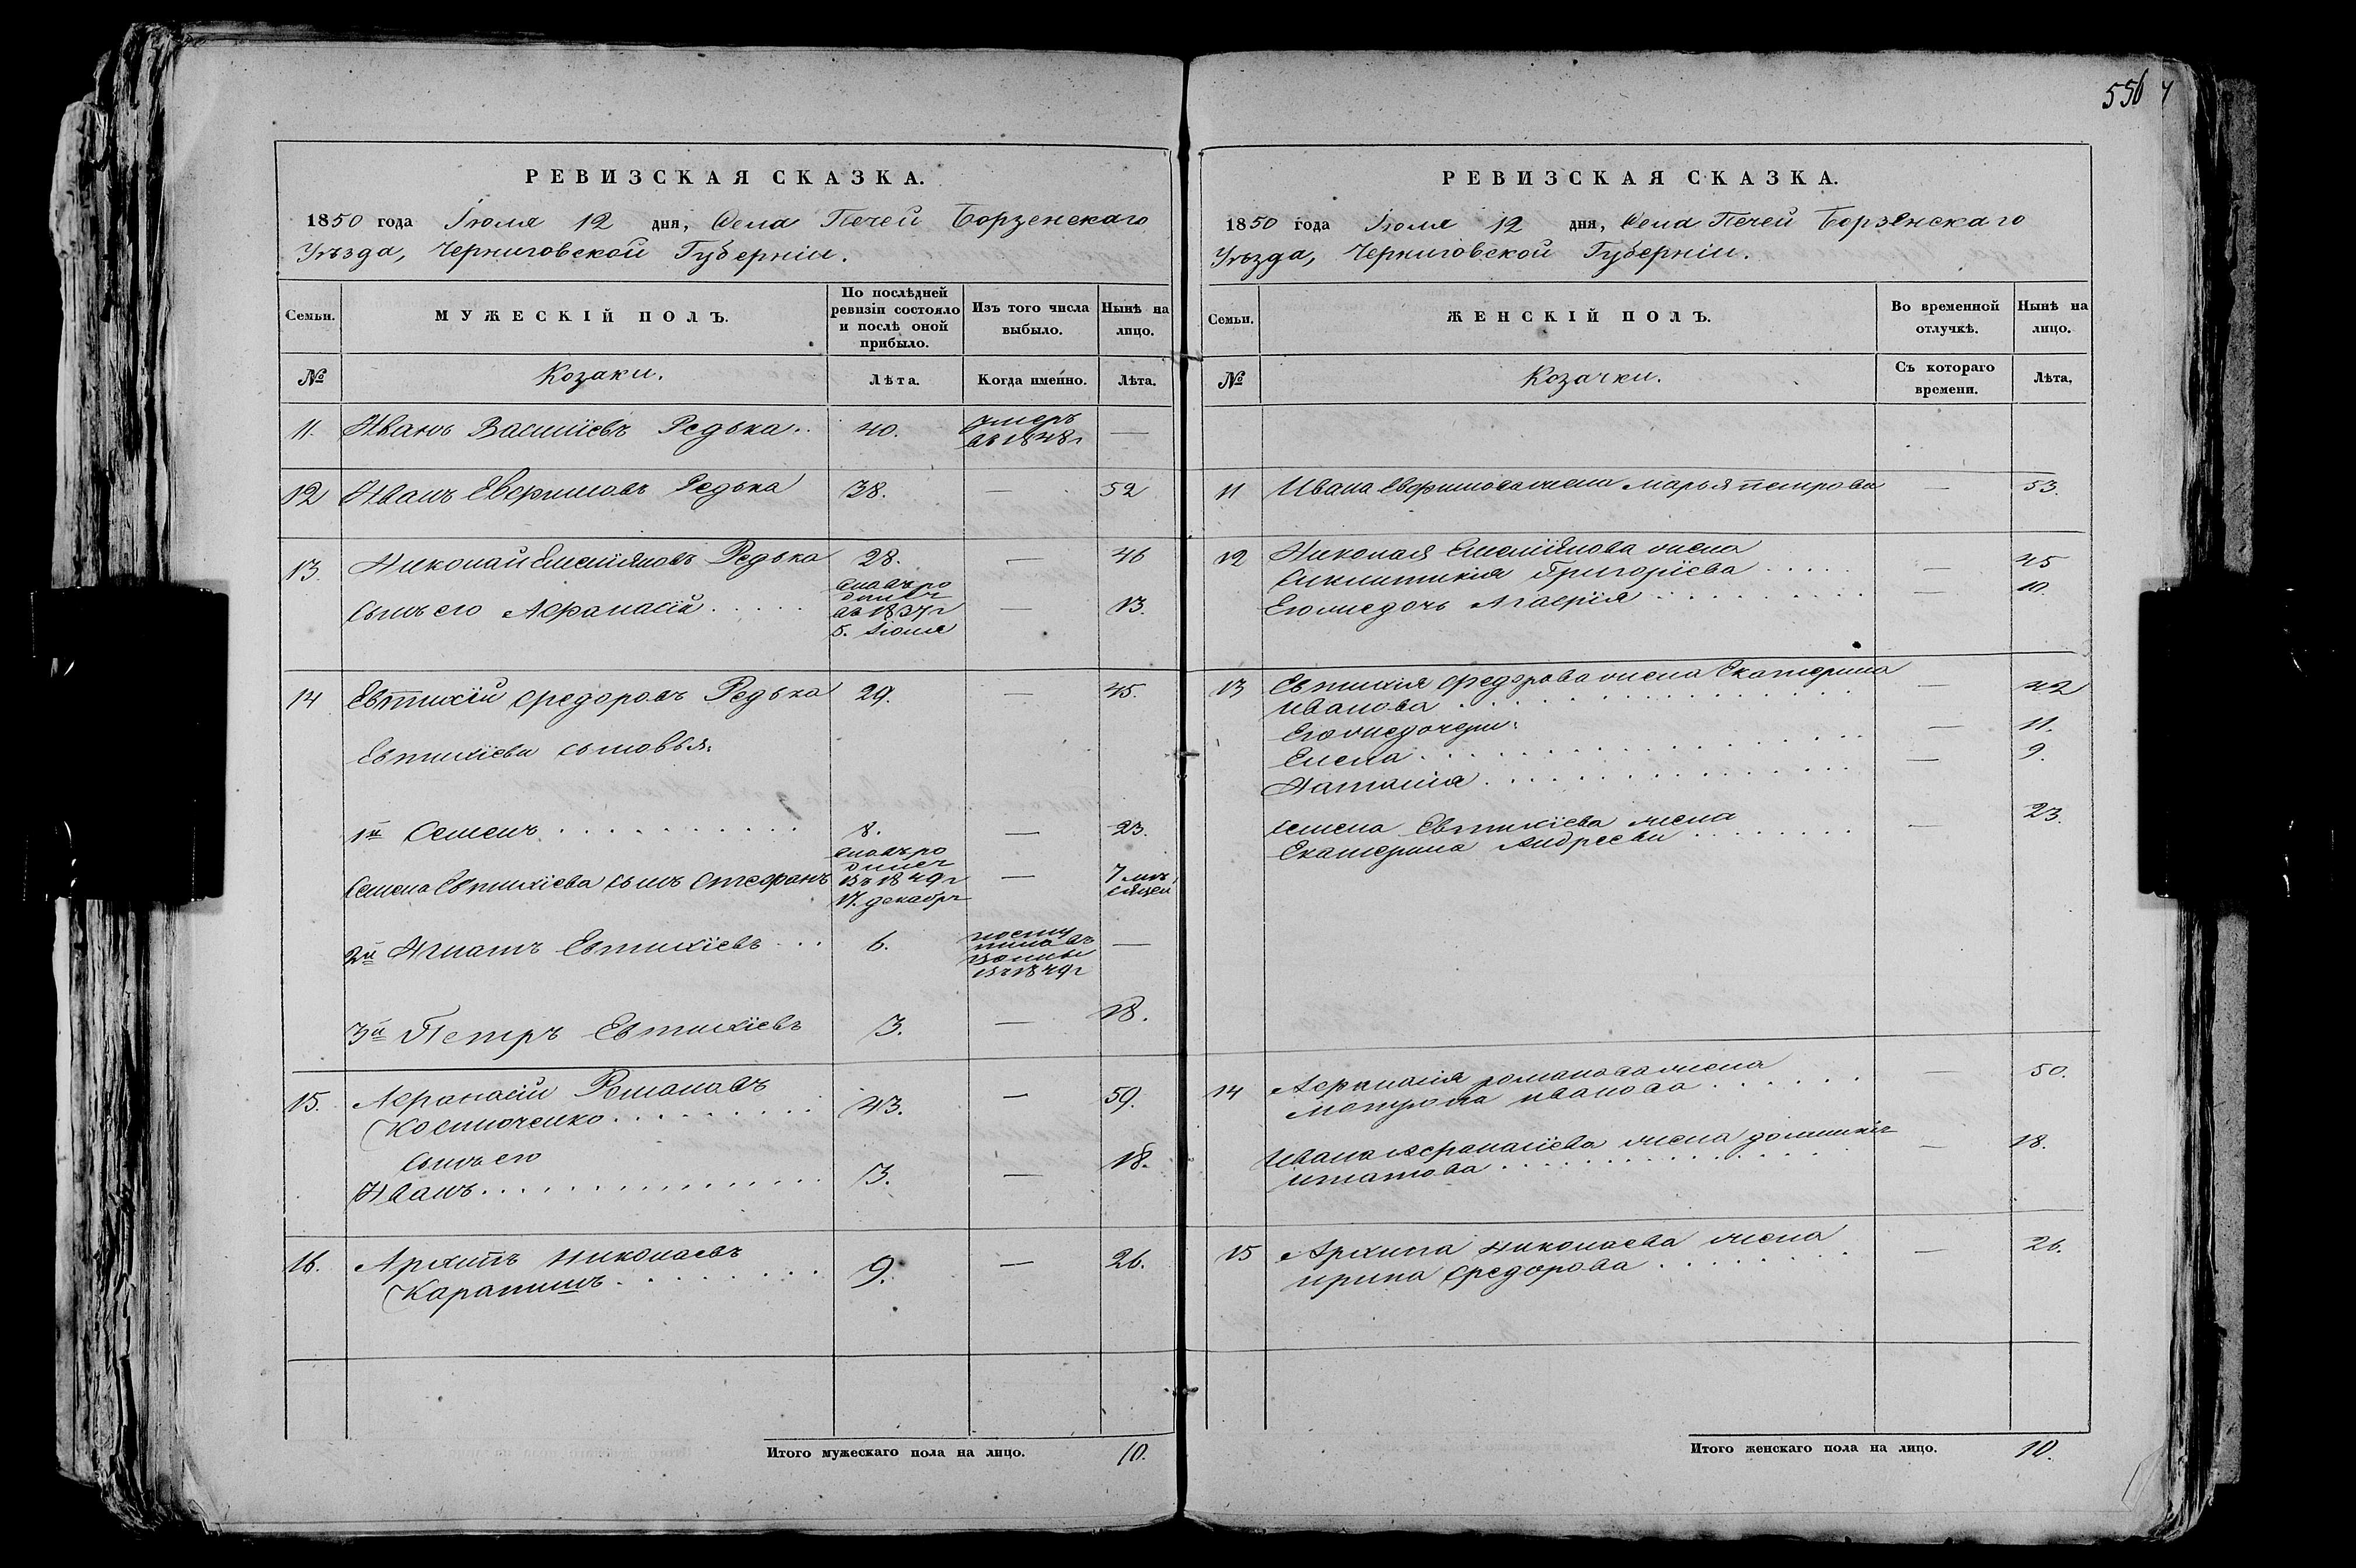 556
РЕВИЗСКАЯ СКАЗКА.
1850 года Іюля 12 дня, Села Печей Борзенскаго
Уѣзда, Черниговской Губерніи.
Семьи.
МУЖЕСКІЙ ПОЛЪ.
По послѣдней ревизіи состояло и послѣ оной прибыло.
Изъ того числа выбыло.
Нынѣ на лицо.
№
Козаки.
Лѣта.
Когда именно.
Лѣта.
11. Иванъ Василіевъ Редька.. 40. умеръ —
въ 1848г
12 Иванъ Евфимовъ Редька 38. — 52
13. Николай Емеліяновъ Редька 28. — 46
Сынъ его Афанасій . . . . . — 13.
въ 1837г
5. Іюня
14 Евтихій Федоровъ Редька 29. — 45.
Евтихіевы сыновья:
1й Семенъ . . . . . . . . . . . 8. — 23.
Семена Евтихіева сынъ Стефанъ — 7 мѣ
въ 1849г сяцей
17. декабр
2й Игнатъ Евтихіевъ . . . 6. —
въ 1849г
3й Петръ Евтихіевъ 3. — 18.
15. Афанасій Романовъ
Костюченко . . . . . . . . . 43. — 59.
Сынъ его
Иванъ . . . . . . . . . . . . . . . . 3. — 18.
16. Архипъ Николаевъ
Карапишъ . . . . . . . . 9. — 26.
Итого мужескаго пола на лицо. 10.
РЕВИЗСКАЯ СКАЗКА.
1850 года Іюля 12 дня, Села Печей Борзенскаго
Уѣзда, Черниговской Губерніи.
Семьи.
ЖЕНСКІЙ ПОЛЪ.
Во временной отлучкѣ.
Нынѣ на лицо.
№
Козачки.
Съ котораго времени.
Лѣта,
11 Ивана Евфимова жена Марья Петрова — 53.
12 Николая Емеліянова жена
Синклитикія Григоріева . . . . . — 45
Его же дочь Агафія . . . . . . . . . . — 10.
13 Евтихія Федорова жена Екатерина
Иванова . . . . . . . . . . . . . . . — 42
Его же дочери:
Елена . . . . . . . . . . . . . . . . . — 11.
Наталія . . . . . . . . . . . . . . . — 9.
Семена Евтихіева жена
Екатерина Андреева . . . . . . . . — 23.
14 Афанасія Романова жена
Матрона Иванова . . . . . . — 50.
Ивана Афанасіева жена Домникія
Игнатова . . . . . . . . . . . . . . — 18.
15 Архипа Николаева жена
Ирина Федорова . . . . . . . — 26.
Итого женскаго пола на лицо. 10.